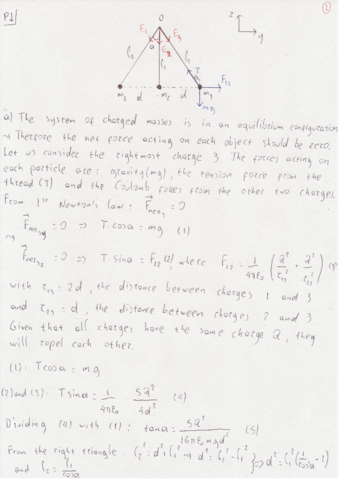 ①
P1/
O
z
y
F₁
F₂
F₃
a
l₂
l₁
l₂
T
F₁₂
m₁
d
m₂
d
m₃
m₃g
a) The system of charged masses is in an equilibrium configuration
Therefore the net force acting on each object should be zero.
Let us consider the rightmost charge 3. The forces acting on
each particle are: gravity (mg), the tension force from the
thread (T) and the Coulomb forces from the other two charges.
From 1st Newton's law: F =0
=0 => T·cosa = mg (1)
=0 => T sina = F₁₂(2), where F₁₂ = 1/4πε₀ (Q²/r₁₃² + Q²/r₂₃²) (3)
with r₁₃ = 2d, the distance between charges 1 and 3
and r₂₃ = d, the distance between charges 2 and 3.
Given that all charges have the same charge Q, they
will repel each other.
(1): Tcosa = mg
(2) and (3): T sina = 1/4πε₀ 5Q²/4d² (4)
Dividing (4) with (1): tana = 5Q²/16πε₀mgd² (5)
From the right triangle: l₂² = d² + l₁² => d² = l₂² - l₁² } => d² = l₁² (1/cos²a - 1)
and l₂ = l₁/cosa